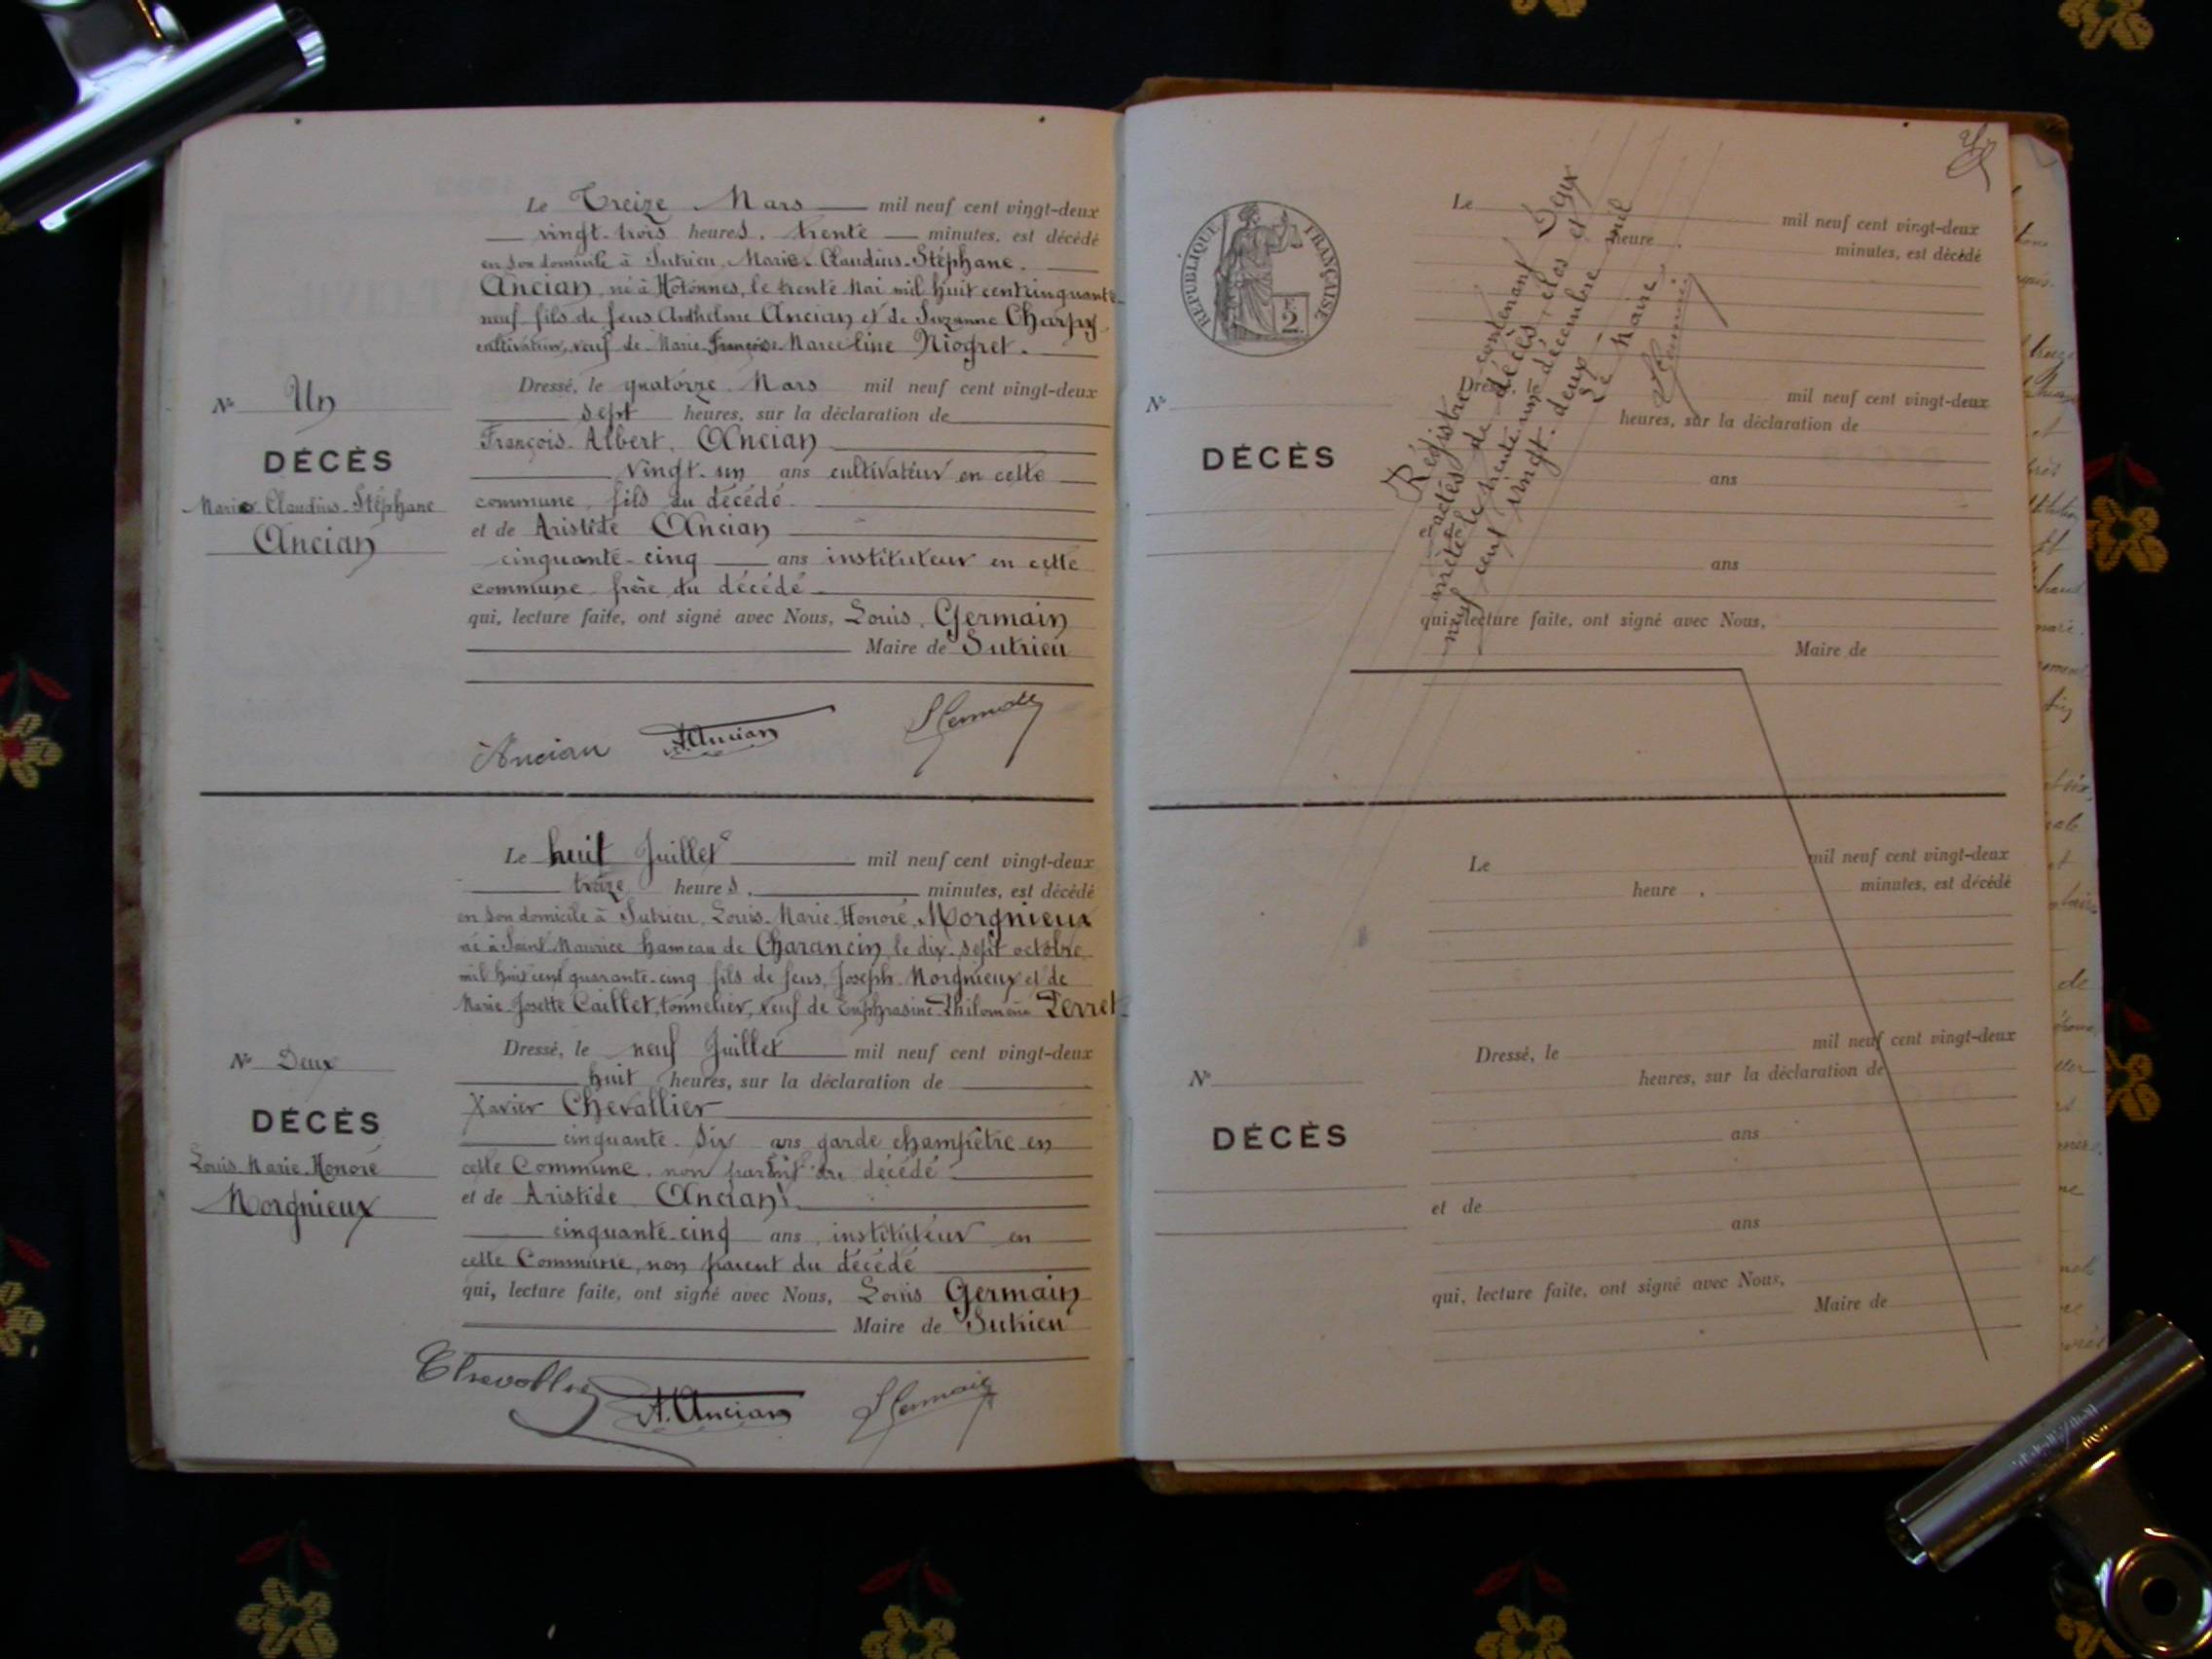 Le Treize Mars mil neuf cent vingt-deux
vingt-trois heures. trente minutes, est décédé
en son domicile à Sutrieu, Marie-Claudius-Stéphane.
Ancian, né à Hotonnes, le trente Mai mil huit cent cinquante
neuf fils de feus Anthelme Ancian et de Suzanne Charpy
cultivateur, veuf de Marie-Françoise-Marceline Niogret.
Dressé, le quatorze Mars mil neuf cent vingt-deux
sept heures, sur la déclaration de
François-Albert, Ancian
vingt-un ans cultivateur en cette
commune, fils du décédé.
et de Aristide Ancian
cinquante-cinq ans instituteur en cette
commune frère du décédé
qui, lecture faite, ont signé avec Nous, Louis, Germain
Maire de Sutrieu
Ancian A.Ancian LGermain
N° Un
DÉCÈS
Marie-Claudius-Stéphane
Ancian
Le huit Juillet mil neuf cent vingt-deux
treize heures. minutes, est décédé
en son domicile à Sutrieu, Louis-Marie-Honoré, Morgnieux
né à Saint-Maurice hameau de Charancin, le dix-sept octobre
mil huit cent quarante-cinq fils de feus, Joseph Morgnieux et de
Marie-Josette Caillet, tonnelier, veuf de Euphrasine-Philomène Perret
Dressé, le neuf Juillet mil neuf cent vingt-deux
huit heures, sur la déclaration de
Xavier Chevallier
cinquante-six ans garde champêtre en
cette Commune, non parent du décédé
et de Aristide Ancian
cinquante-cinq ans, instituteur en
cette Commune, non parent du décédé
qui, lecture faite, ont signé avec Nous, Louis Germain
Maire de Sutrieu
Chevallier A.Ancian LGermain
N° Deux
DÉCÈS
Louis-Marie-Honoré
Morgnieux
RÉPUBLIQUE FRANÇAISE
Le mil neuf cent vingt-deux
heure. minutes, est décédé
Dressé, le mil neuf cent vingt-deux
heures, sur la déclaration de
ans
et de
ans
qui, lecture faite, ont signé avec Nous,
Maire de
N°
DÉCÈS
Régistre contenant Deux
actes de décès, clos et
arrêté le trente un décembre mil
neuf cent vingt-deux
Le Maire
LGermain
Le mil neuf cent vingt-deux
heure. minutes, est décédé
Dressé, le mil neuf cent vingt-deux
heures, sur la déclaration de
ans
et de
ans
qui, lecture faite, ont signé avec Nous,
Maire de
N°
DÉCÈS